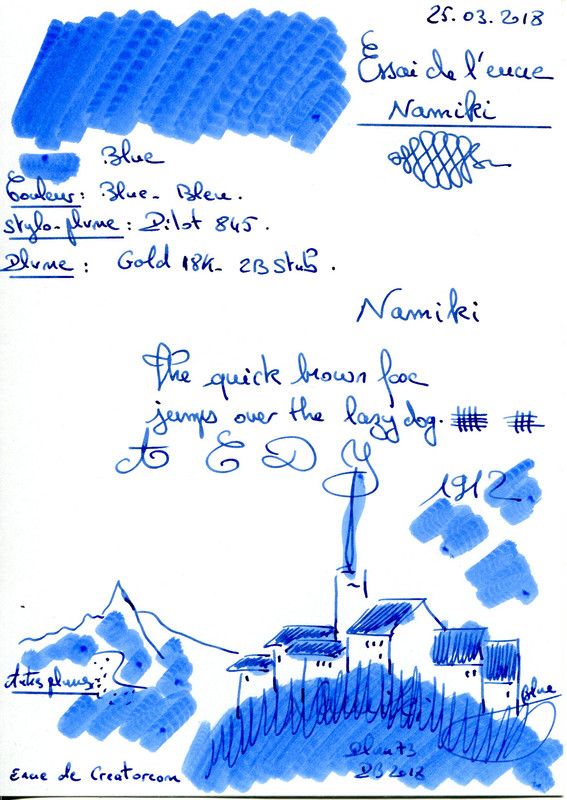 25.03.2018
Essai de l'encre
Namiki
Blue
Couleur : Blue - Bleu.
Stylo-plume : Pilot 845.
Plume : Gold 18K - 2B Stub.
Namiki
The quick brown fox
jumps over the lazy dog.
A E D Y
1912
Blue
DB 2018
Encre de Creatorcom